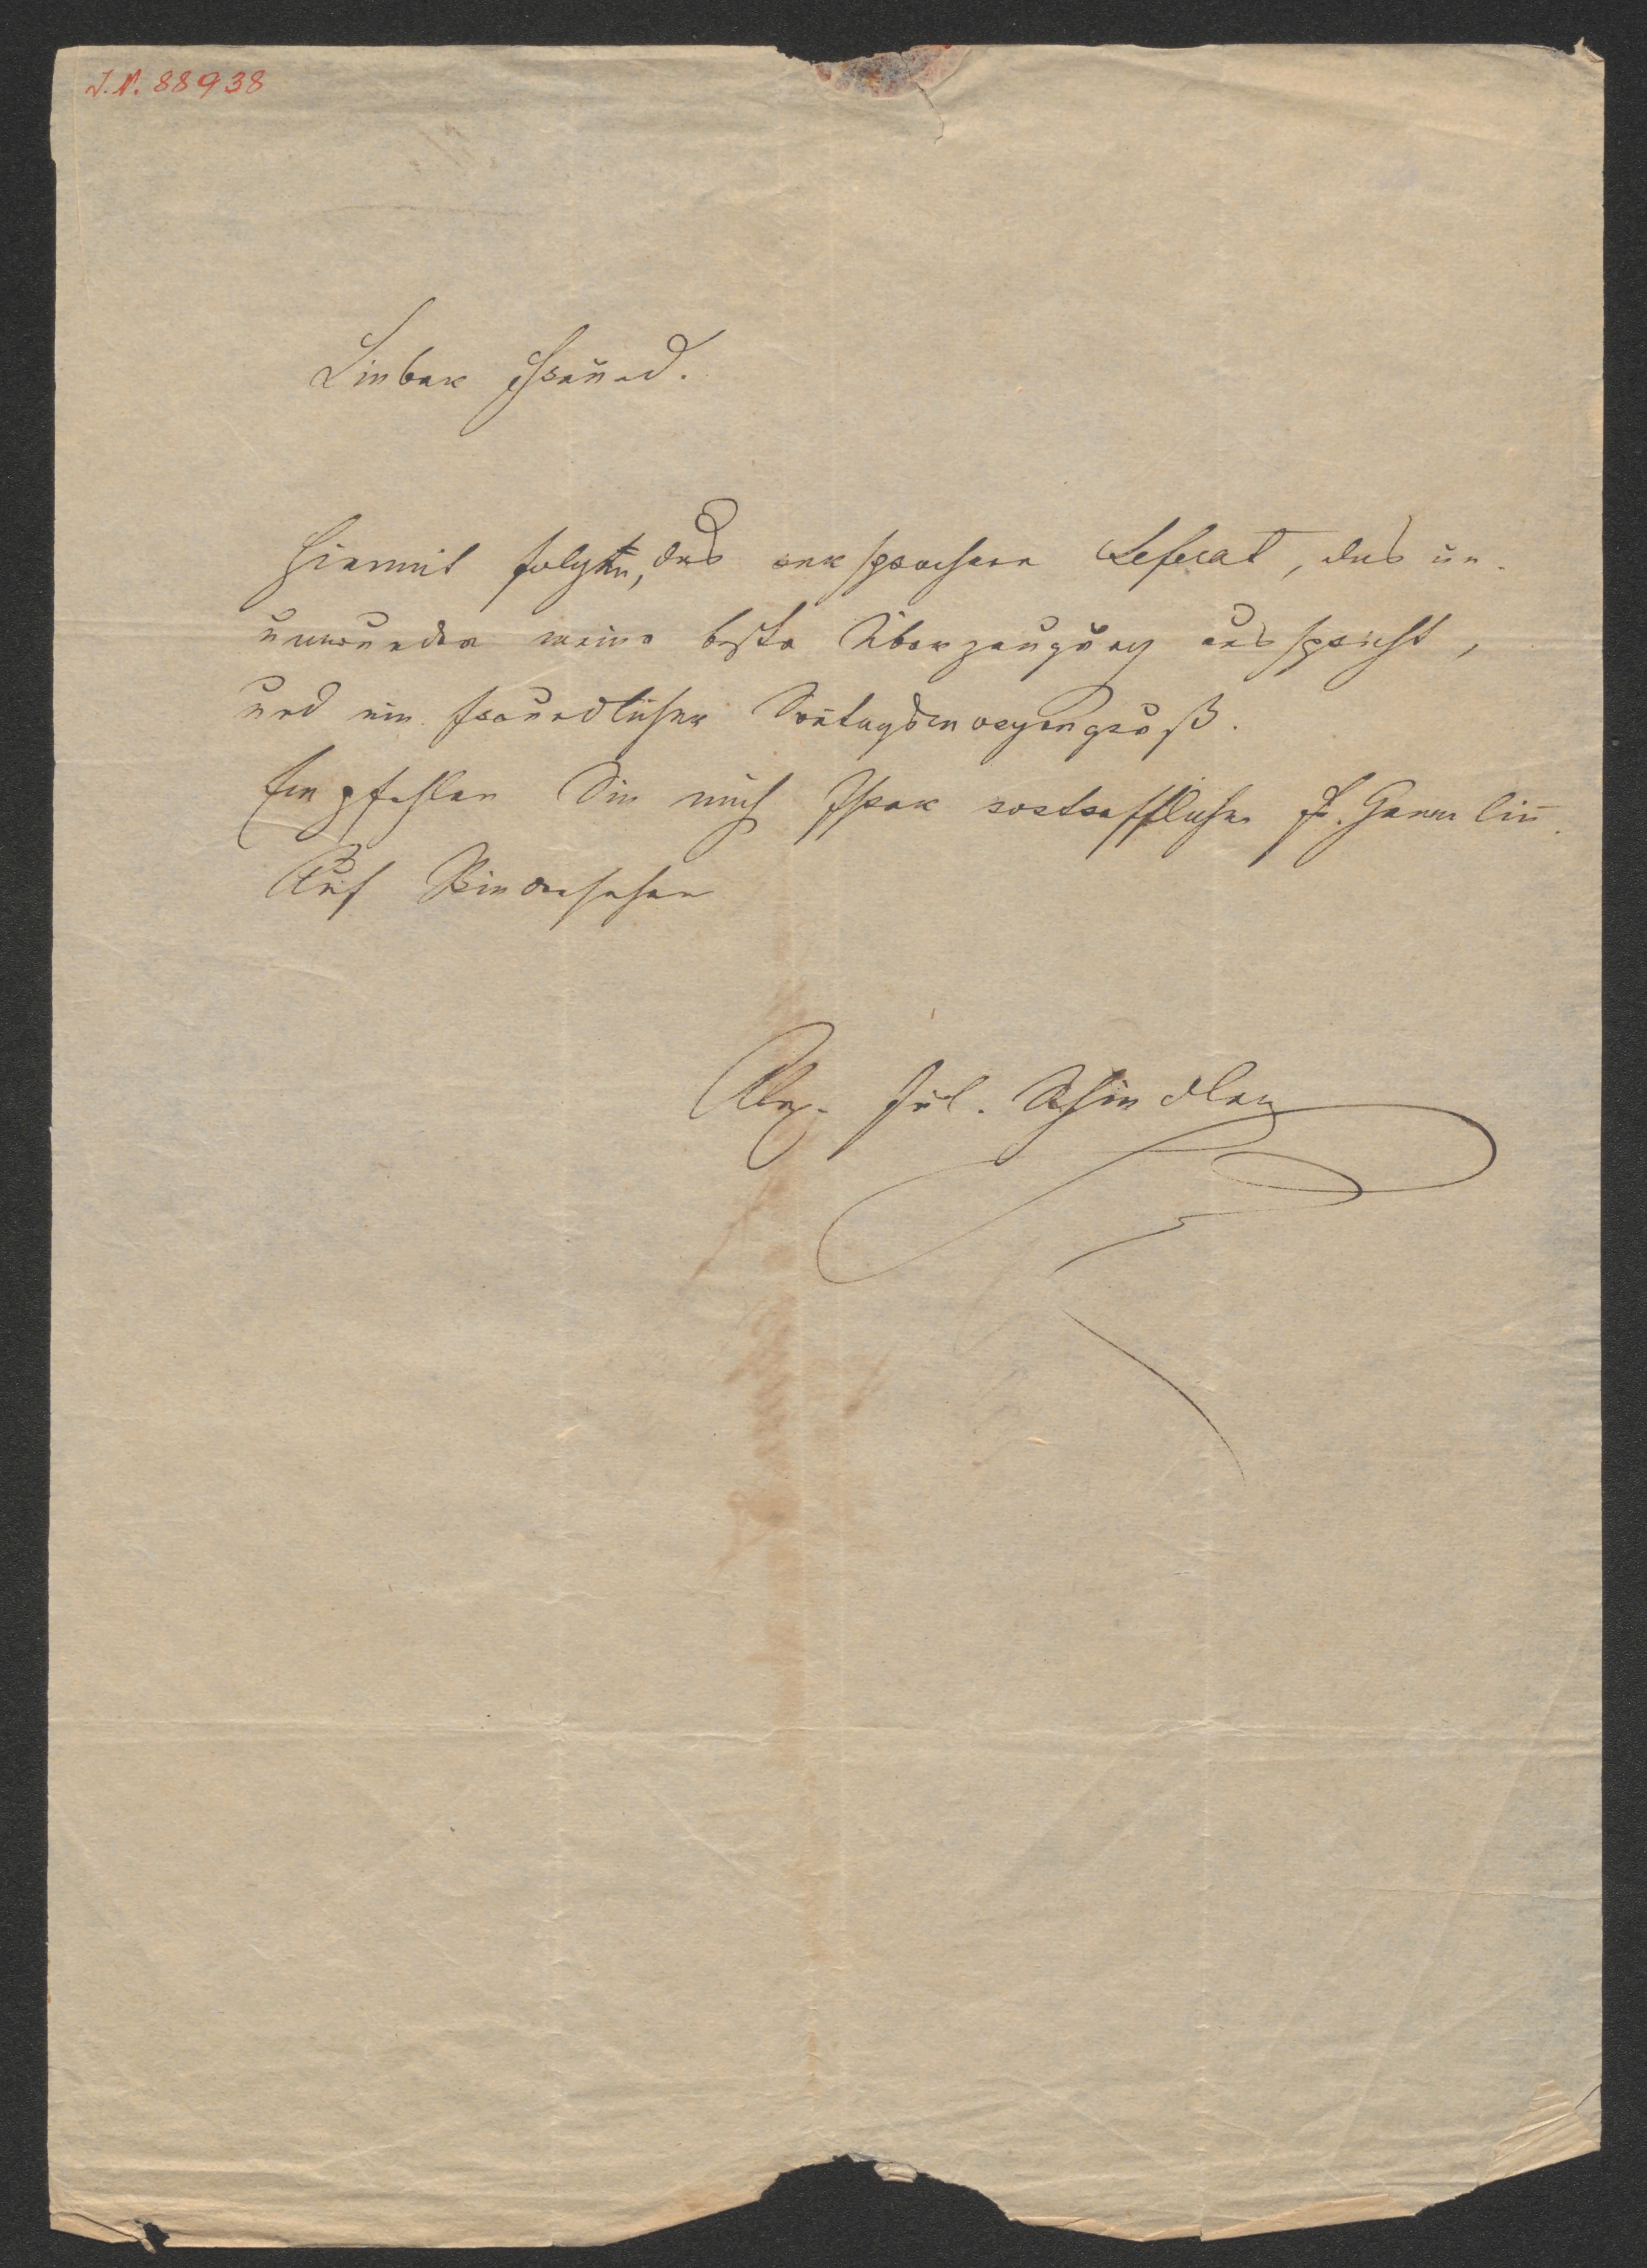 I.N. 88938
Lieber Freund.
Hiermit folgt, das versprochene Referat, das un-
umwunden meine beste Überzeugung ausspricht,
und ein freundlicher Soñtagsmorgengruß.
Empfehlen Sie mich Ihrer vortrefflichen Fr. Gemalin
Auf Wiedersehen
Alex. Jul. Schindler